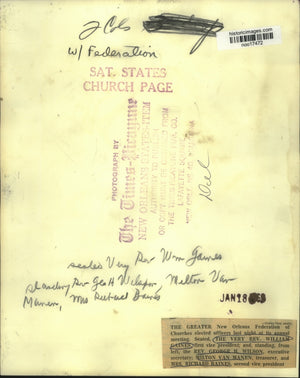 2 Cols
historicimages.com
noo17472
w/ Federation
SAT. STATES
CHURCH PAGE
PHOTOGRAPH BY
The Times-Picayune
NEW ORLEANS STATES-ITEM
seated Very Rev Wm Gaines
standing Rev Geo H Wilson, Melton Van
Manen, Mrs Richard
JAN 18
THE GREATER New Orleans Federation of
Churches elected officers last night at its annual
meeting. Seated, THE VERY REV. WILLIAM
GAINES, first vice president; and, standing, from
left, the REV. GEORGE H. WILSON, executive
secretary; MILTON VAN MANEN, treasurer, and
MRS. RICHARD BAINES, second vice president